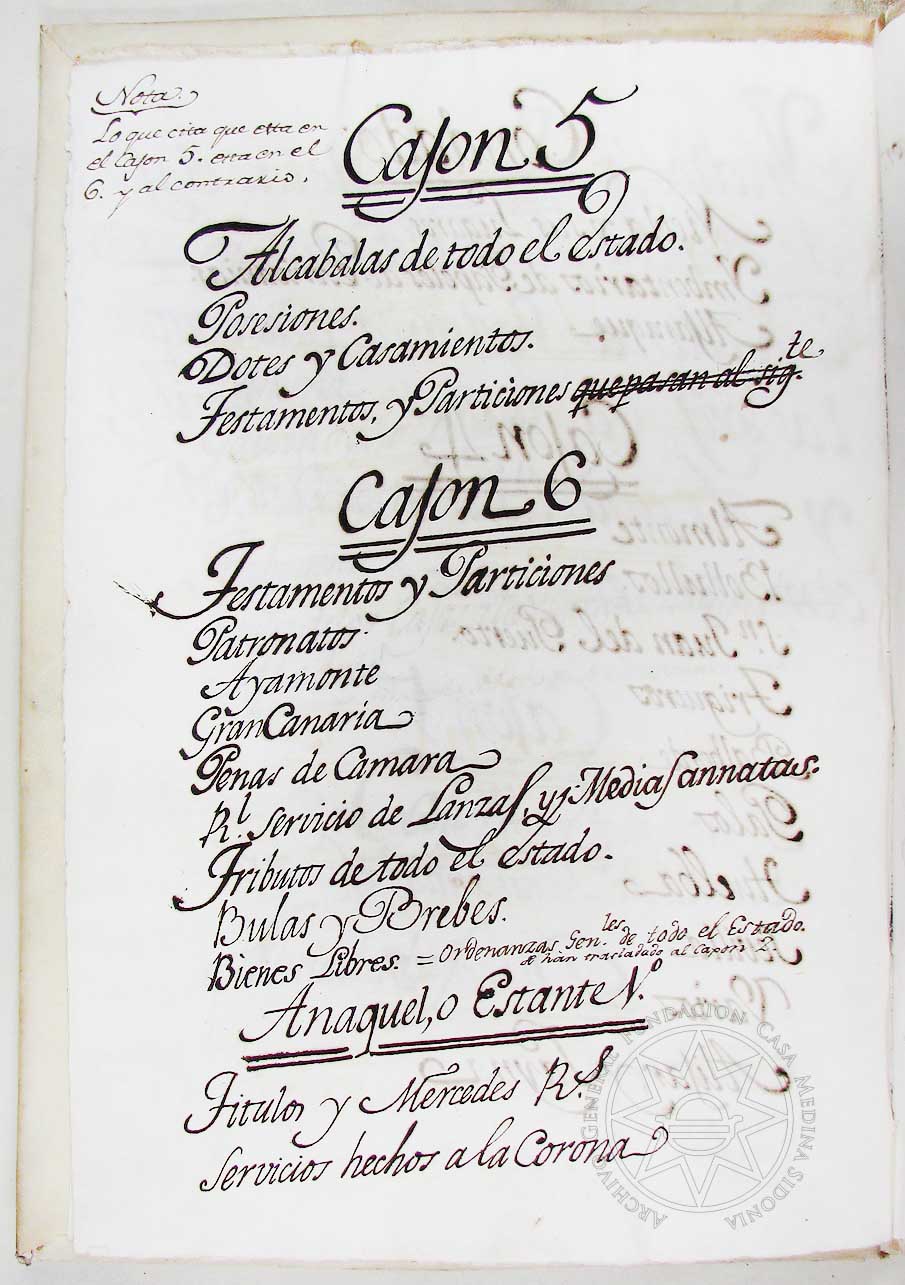 Nota.
Lo que cita que esta en
el Cajon 5. esta en el
6. y al contrario.
Cajon 5
Alcabalas de todo el estado.
Posesiones.
Dotes y Casamientos.
Testamentos, y Particiones que pasan al sig.te
Cajon 6
Testamentos y Particiones
Patronatos.
Ayamonte
Gran Canaria
Penas de Camara
Rl. servicio de Lanzas, y Medias annatas.
Tributos de todo el estado.
Bulas y Brebes.
Bienes Libres. = Ordenanzas Gen.les de todo el Estado.
se han trasladado al Capon 2.
Anaquel, o Estante N.º
Titulos y Mercedes R.s
servicios hechos a la Corona
ARCHIVO GENERAL FUNDACION CASA MEDINA SIDONIA